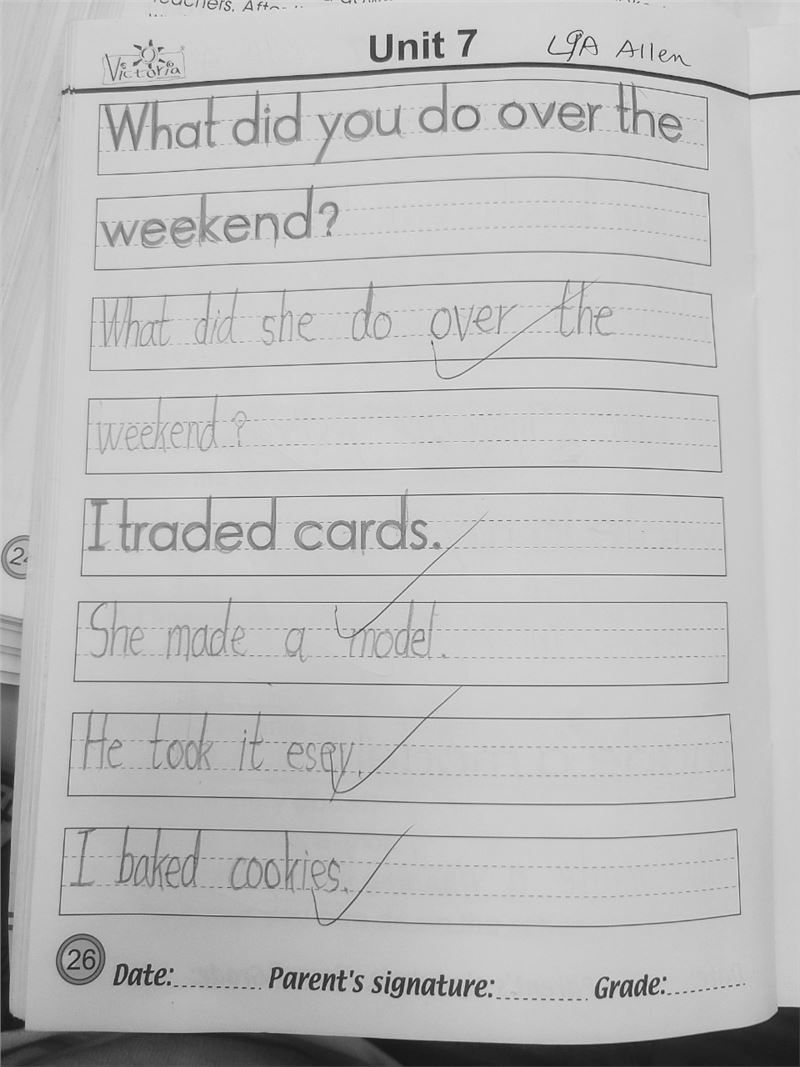 teachers. Afte
Victoria
Unit 7
L9A Allen
What did you do over the
weekend?
What did she do over the
weekend?
I traded cards.
She made a model.
He took it esay.
I baked cookies.
24
26
Date: Parent's signature: Grade: